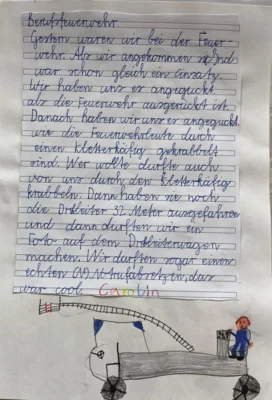 Berufsfeuerwehr
Gestern waren wir bei der Feuer-
wehr. Als wir angekommen sind
war schon gleich ein Einsatz.
Wir haben uns es angeguckt
als die Feuerwehr ausgerückt ist.
Danach haben wir uns es angeguckt,
wie die Feuerwehrleute durch
einen Kletterkäfig gekrabbelt
sind. Wer wollte durfte auch
von uns durch den Kletterkäfig
krabbeln. Dann haben sie noch
die Drehleiter 32 Meter ausgefahren
und dann durften wir ein
Foto auf dem Drehleiterwagen
machen. Wir durften sogar einen
echten Notruf absetzen, das
war cool.